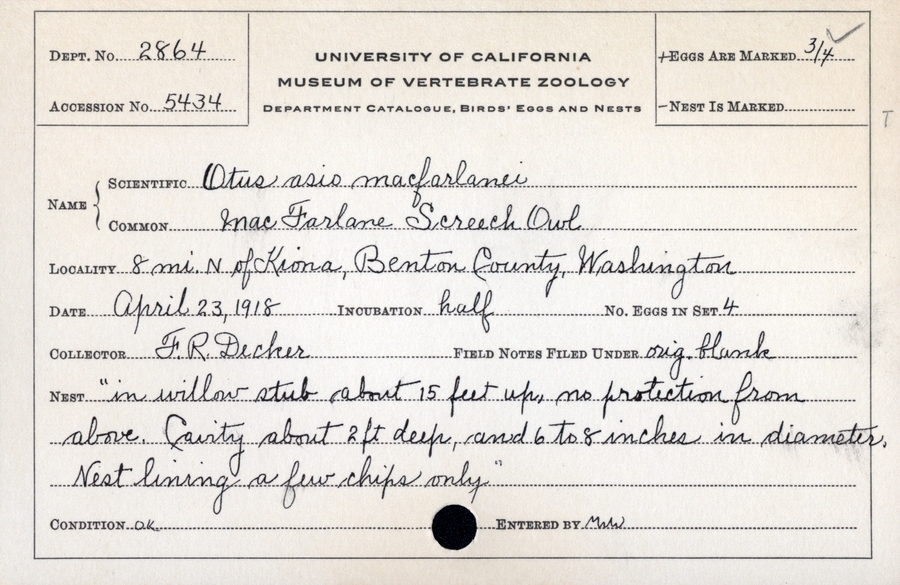 DEPT. No. 2864
ACCESSION No. 5434
UNIVERSITY OF CALIFORNIA
MUSEUM OF VERTEBRATE ZOOLOGY
DEPARTMENT CATALOGUE, BIRDS' EGGS AND NESTS
+EGGS ARE MARKED 3/4 ✓
–NEST IS MARKED
T
NAME { SCIENTIFIC Otus asio macfarlanei
COMMON Mac Farlane Screech Owl
LOCALITY 8 mi. N of Kiona, Benton County, Washington
DATE April 23, 1918 INCUBATION half NO. EGGS IN SET 4
COLLECTOR F. R. Decker FIELD NOTES FILED UNDER orig. blank
NEST "in willow stub about 15 feet up, no protection from
above. Cavity about 2 ft deep, and 6 to 8 inches in diameter.
Nest lining a few chips only"
CONDITION O.K. ENTERED BY